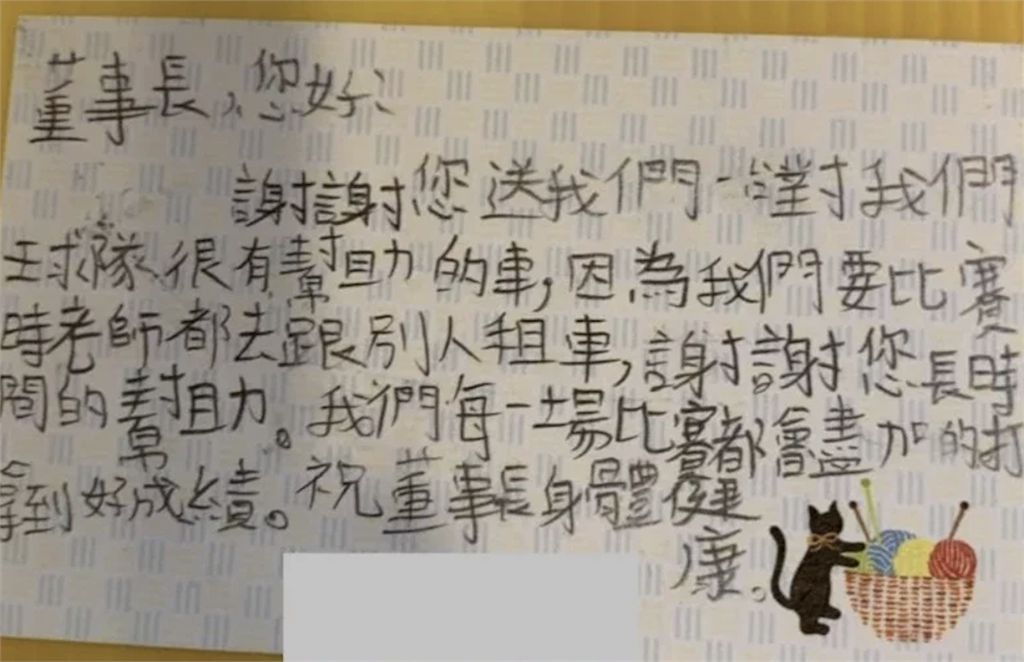 董事長,您好:
謝謝您送我們一對我們
球隊很有幫助的車,因為我們要比賽
時老師都去跟別人租車,謝謝您長時
間的幫助。我們每一場比賽都會盡加的打
拿到好成績。祝董事長身體健
康。